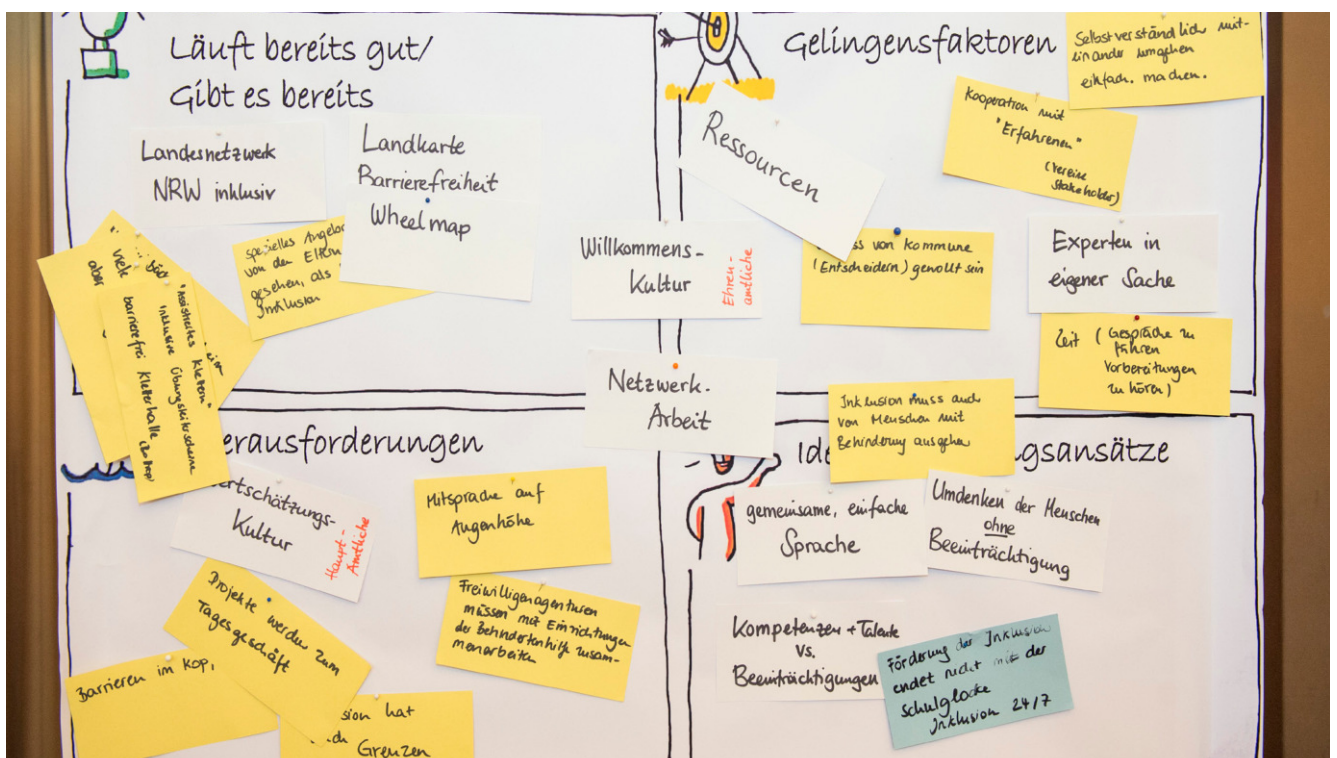 Läuft bereits gut/
Gibt es bereits
Landesnetzwerk
NRW inklusiv
Landkarte
Barrierefreiheit
Wheelmap
spezielles
von den Eltern
gesehen, als
Inklusion
viele
aber
"Assistiertes Klettern"
Inklusive
barrierefrei Kletterhalle
Willkommens-
Kultur
Ehren-
amtliche
Netzwerk-
Arbeit
Gelingensfaktoren
Selbstverständlich mit-
einander umgehen
einfach machen.
Kooperation mit
"Erfahrenen"
(Vereine
Stakeholder)
Ressourcen
von Kommune
(Entscheidern) gewollt sein
Experten in
eigener Sache
Zeit (Gespräche zu
führen
Vorbereitungen
zu hören)
Inklusion muss auch
von Menschen mit
Behinderung ausgehen
erausforderungen
ertschätzungs-
Kultur
Haupt-
Amtliche
Mitsprache auf
Augenhöhe
Projekte werden zum
Tagesgeschäft
Freiwilligenagenturen
müssen mit Einrichtungen
der Behindertenhilfe zusam-
menarbeiten
Barrieren im Kop
sion hat
Grenzen
Ide
gsansätze
gemeinsame, einfache
Sprache
Umdenken der Menschen
ohne
Beeinträchtigung
Kompetenzen + Talente
vs.
Beeinträchtigungen
Förderung der Inklusion
endet nicht mit der
Schulglocke
Inklusion 24/7